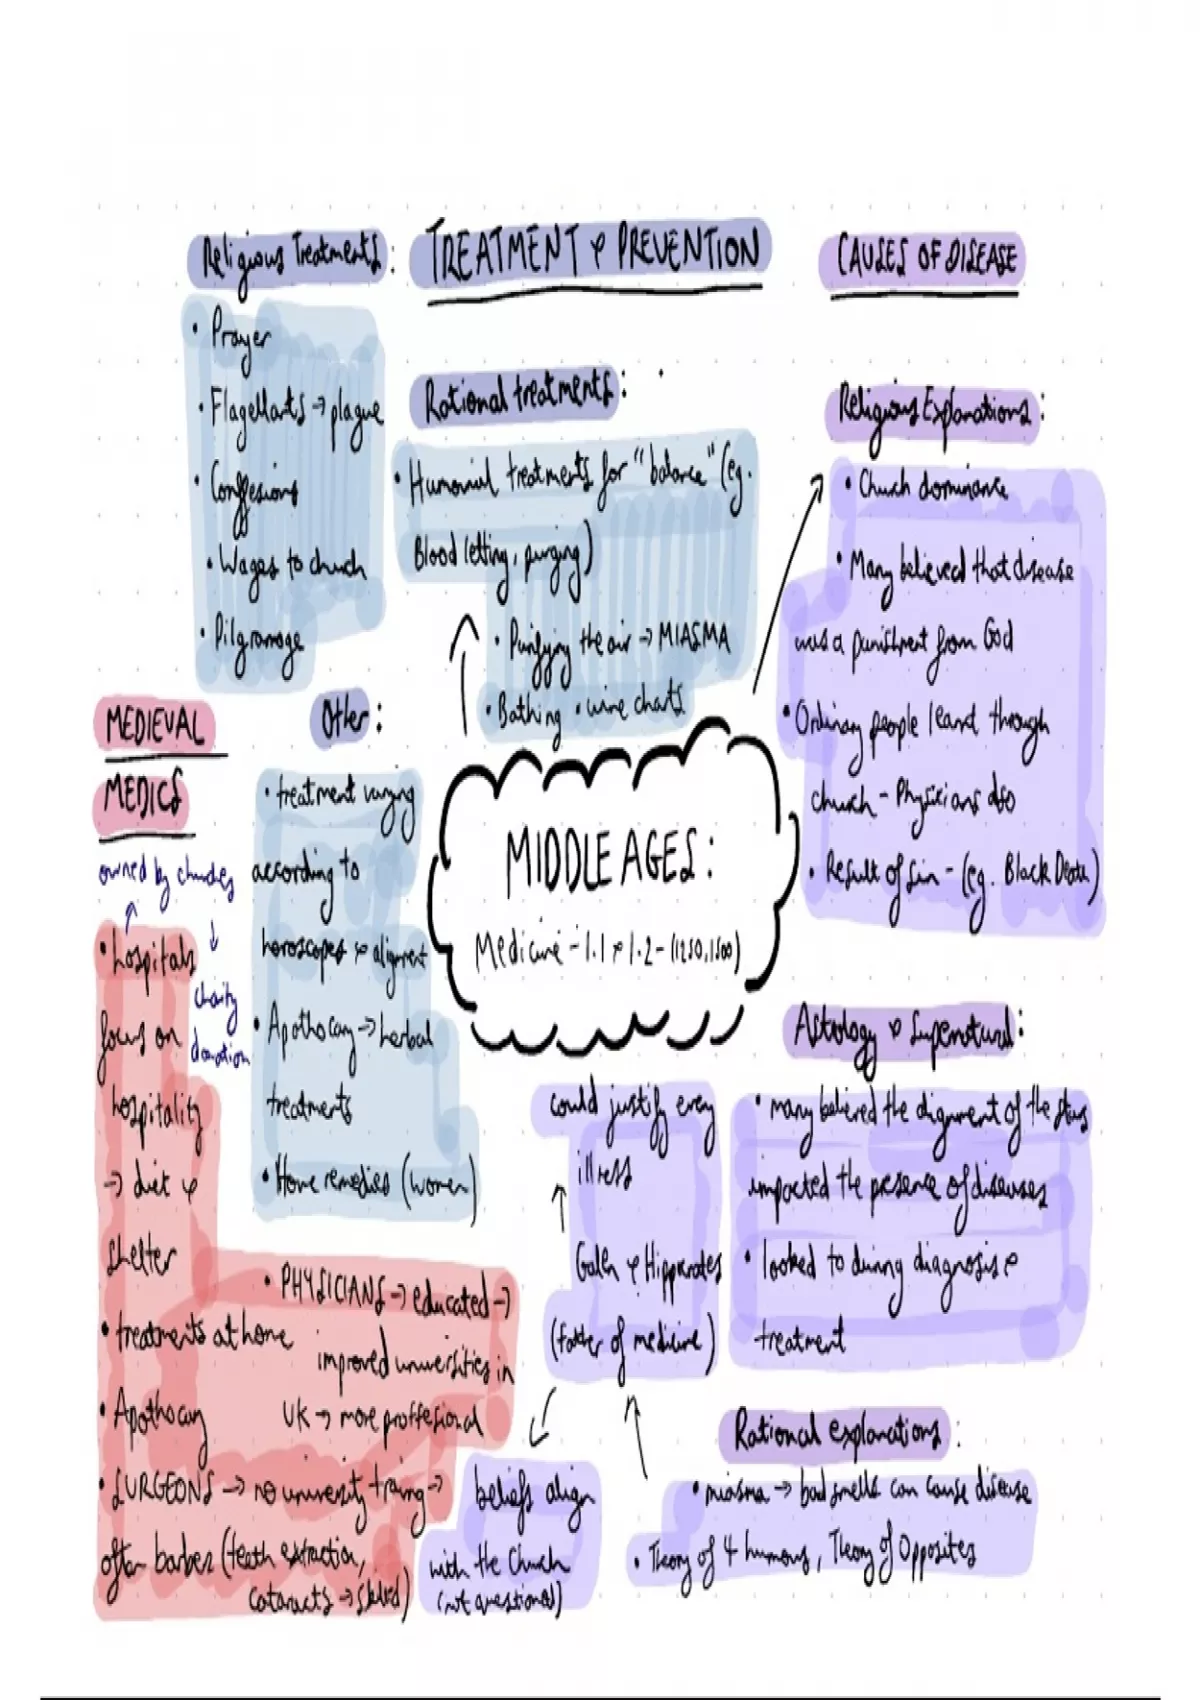 Religious Treatments:
• Prayer
• Flagellants → plague
• Conffesions
• Wages to church
• Pilgramage
TREATMENT & PREVENTION
Rational treatments:
• Humorial treatments for "balance" (eg.
Blood letting, purging)
• Purifying the air → MIASMA
• Bathing • urine charts
CAUSES OF DISEASE
Religious Explanations:
• Church dominance
• Many believed that disease
was a punishment from God
• Ordinary people learnt through
church - Physicians also
• Result of sin - (eg. Black Death)
MEDIEVAL
MEDICS
owned by churches
• hospitals
charity
donation
focus on
hospitality
→ diet &
shelter
• treatments at home
• Apothocary
• PHYSICIANS → educated →
improved universities in
UK → more proffesional
• SURGEONS → no university traing →
often barber (teeth extraction,
cataracts → skilled)
Other:
• treatment varying
according to
horoscopes & alignment
• Apothocary → herbal
treatments
• Home remedies (women)
MIDDLE AGES:
Medicine - 1.1 & 1.2 - (1250,1500)
Astrology & Supernatural:
• many believed the alignment of the stars
impacted the presence of diseases
• looked to during diagnosis &
treatment
could justify every
illness
Galen & Hipporates
(father of medicine)
beliefs align
with the Church
(not questioned)
Rational explanations:
• miasma → bad smells can cause disease
• Theory of 4 humours, Theory of Opposites